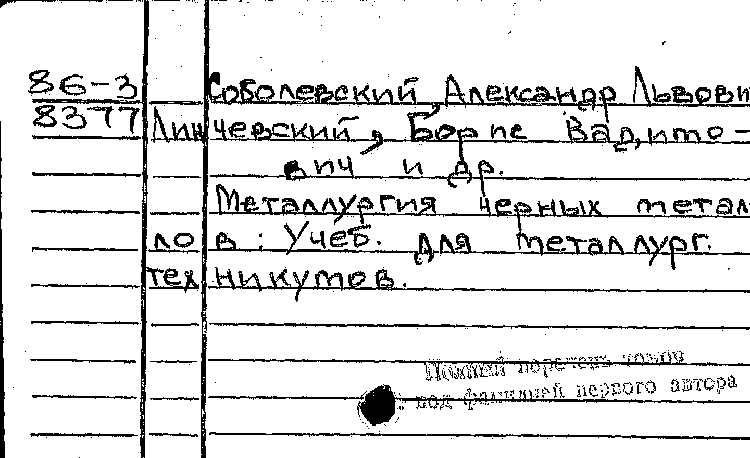 86-3 Соболевский, Александр Львови
8377 Линчевский, Борис Вадимо-
вич и др.
Металлургия черных метал
лов: Учеб. для металлург.
техникумов.
Полный перечень томов
: под фамилией первого автора